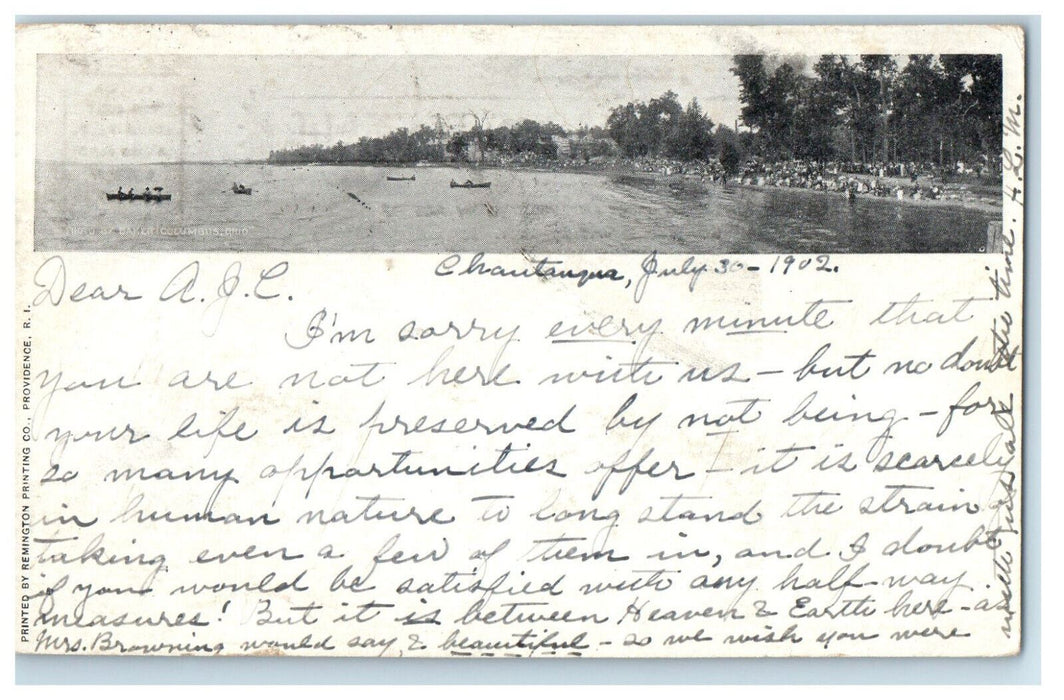 PHOTO BY BAKER COLUMBUS, OHIO
Chautauqua, July 30 - 1902.
Dear A. J. C.
I'm sorry every minute that
you are not here with us - but no doubt
your life is preserved by not being - for
so many opportunities offer - it is scarcely
in human nature to long stand the strain of
taking even a few of them in, and I doubt
if you would be satisfied with any half-way
measures! But it is between Heaven & Earth here - as
Mrs. Browning would say, & beautiful - so we wish you were
with us all the time. H. L. M.
PRINTED BY REMINGTON PRINTING CO., PROVIDENCE, R. I.